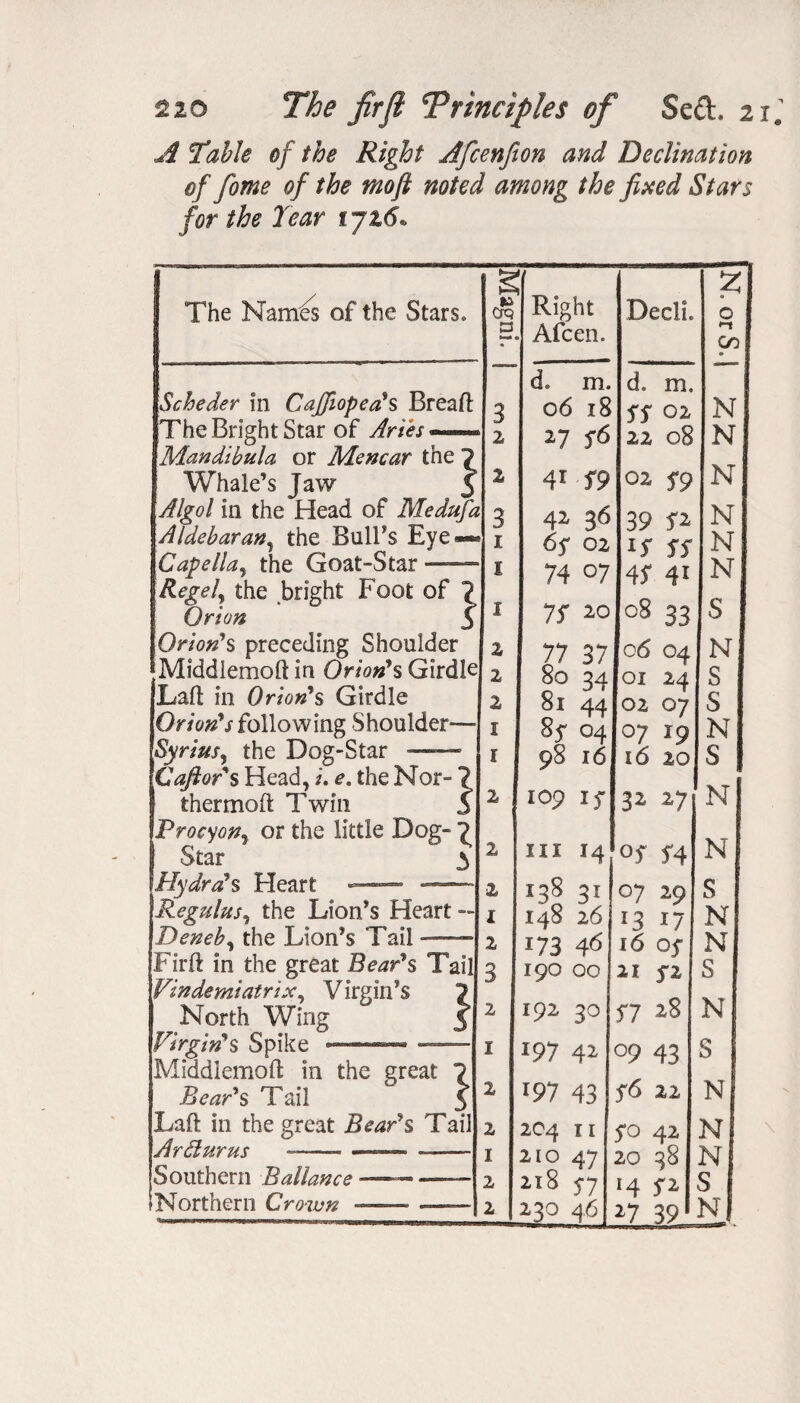 220 The firſt Principles of Sect. 21.
A Table of the Right Aſcenſion and Declination
of ſome of the moſt noted among the fixed Stars
for the Year 1726.
The Names of the Stars. Magni. Right Aſcen. Decli. N. or S.
d. m. d. m.
Scheder in Caſſiopea's Breaſt 3 06 18 55 02 N
The Bright Star of Aries — 2 27 56 22 08 N
Mandibula or Mencar the
Whale's Jaw 2 41 59 02 59 N
Algol in the Head of Meduſa 3 42 36 39 52 N
Aldebaran, the Bull's Eye — 1 65 02 15 55 N
Capella, the Goat-Star — 1 74 07 45 41 N
Regel, the bright Foot of
Orion 1 75 20 08 33 S
Orion's preceding Shoulder 2 77 37 06 04 N
Middlemoſt in Orion's Girdle 2 80 34 01 24 S
Laſt in Orion's Girdle 2 81 44 02 07 S
Orion's following Shoulder— 1 85 04 07 19 N
Syrius, the Dog-Star — 1 98 16 16 20 S
Caſtor's Head, i. e. the Nor-
thermoſt Twin 2 109 15 32 27 N
Procyon, or the little Dog-
Star 2 111 14 05 54 N
Hydra's Heart — — 2 138 31 07 29 S
Regulus, the Lion's Heart — 1 148 26 13 17 N
Deneb, the Lion's Tail — 2 173 46 16 05 N
Firſt in the great Bear's Tail 3 190 00 21 52 S
Vindemiatrix, Virgin's
North Wing 2 192 30 57 28 N
Virgin's Spike — — 1 197 42 09 43 S
Middlemoſt in the great
Bear's Tail 2 197 43 56 22 N
Laſt in the great Bear's Tail 2 204 11 50 42 N
Arcturus — — — 1 210 47 20 38 N
Southern Ballance — — 2 218 57 14 52 S
Northern Crown — — 2 230 46 27 39 N